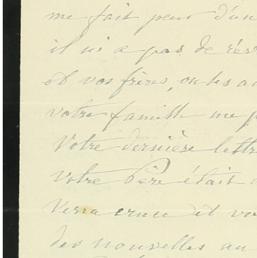 me fait peur d'un
il n'i a pas de rés
et vos frères, on les a
votre famille me p
Votre dernière lettr
Votre Père était
Vera cruce et vo
des nouvelles au